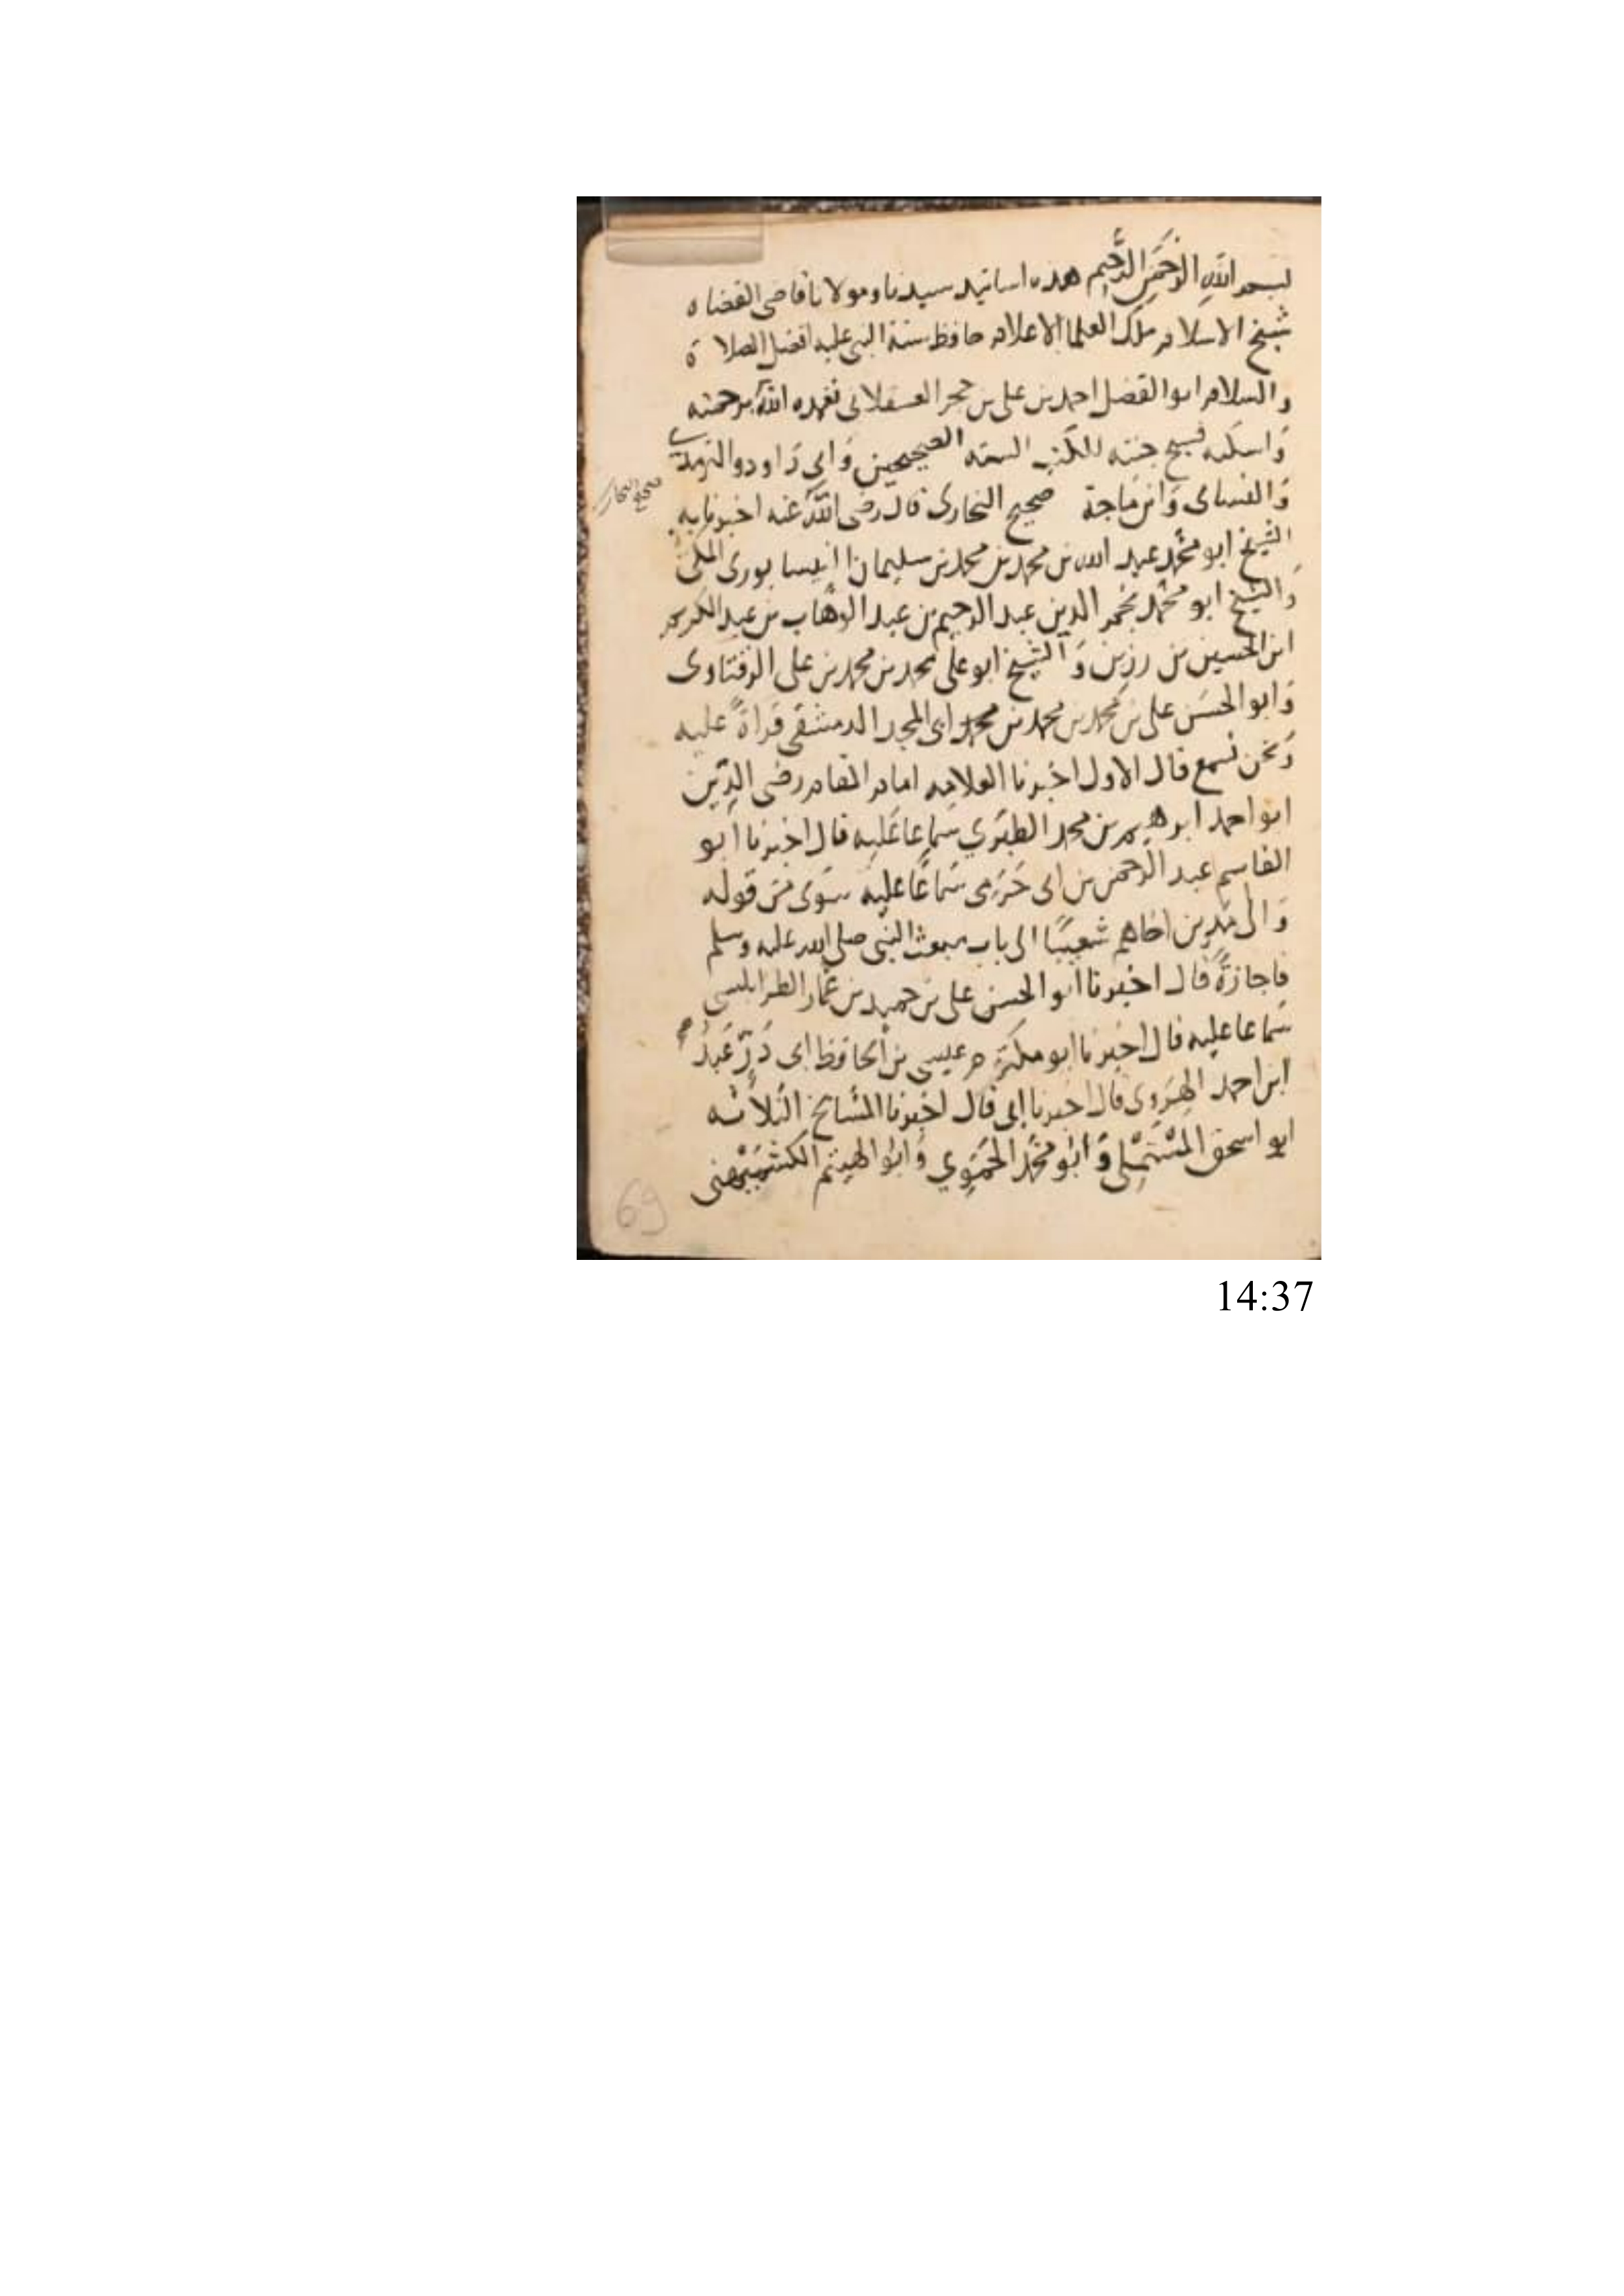 بسم الله الرحمن الرحيم هذه اسانيد سيدنا ومولانا قاضى القضاه
شيخ الاسلام ملك العلما الاعلام حافظ سنة النبى عليه افضل الصلاة
والسلام ابو الفضل احمد بن على بن حجر العسقلانى تغمده الله برحمته
وَاسكنه فسيح جنته للكتب السته الصحيحين وَابى دَاود والترمذي
وَالنساى وَابن مَاجة صحيح البخارى قال رضى الله عنه اخبرنا به
صحيح البخارى
الشيخ ابو محمد عبد الله بن محمد بن محمد بن سليمان النيسابورى المكى
وَالشيخ ابو محمد نجم الدين عبد الرحيم بن عبد الوهاب بن عبد الكريم
ابن الحسين بن رزين وَالشيخ ابو على محمد بن محمد بن على الزفتاوى
وَابو الحسَن على بن محمد بن محمد بن محمد ابى المجد الدمشقى قراةً عليه
وَنحن نسمع قال الاول اخبرنا العلامه امام المقام رضى الدِّين
ابو احمد ابرهيم بن محمد الطبَري سَماعا عَليه قال اخبرنا ابو
القاسم عبد الرحمن بن ابى حَرَمى سَمَاعًا عليه سِوَى من قوله
وَالى مَدين اخاهم شعيبًا الى باب مبعث النبى صلى الله عليه وسلم
فاجازةً قال اخبرنا ابو الحسن على بن حميد بن عمار الطرابلسى
سَماعا عليه قال اخبرنا ابو مكتوم عيسى بن الحافظ ابى ذَرّ عَبد
ابن احمد الهَرَوى قال اخبرنا ابى قال اخبرنا المشائخ الثلاثه
ابو اسحق المُسْتَمِلى وَابُو محمد الحَمَّوِي وَابُو الهيثم الكشمَيْهنى
69
14:37